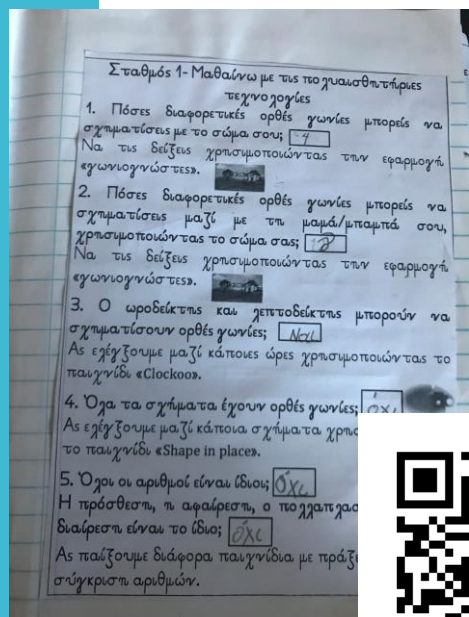 Σταθμός 1- Μαθαίνω με τις πολυαισθητήριες
τεχνολογίες
1. Πόσες διαφορετικές ορθές γωνίες μπορείς να
σχηματίσεις με το σώμα σου; 4
Να τις δείξεις χρησιμοποιώντας την εφαρμογή
«γωνιογνώστες».
2. Πόσες διαφορετικές ορθές γωνίες μπορείς να
σχηματίσεις μαζί με τη μαμά/μπαμπά σου,
χρησιμοποιώντας το σώμα σας;
Να τις δείξεις χρησιμοποιώντας την εφαρμογή
«γωνιογνώστες».
3. Ο ωροδείκτης και λεπτοδείκτης μπορούν να
σχηματίσουν ορθές γωνίες; Ναι
Ας ελέγξουμε μαζί κάποιες ώρες χρησιμοποιώντας το
παιχνίδι «Clockoo».
4. Όλα τα σχήματα έχουν ορθές γωνίες; όχι
Ας ελέγξουμε μαζί κάποια σχήματα χρησ
το παιχνίδι «Shape in place».
5. Όλοι οι αριθμοί είναι ίδιοι; Όχι
Η πρόσθεση, η αφαίρεση, ο πολλαπλασ
διαίρεση είναι το ίδιο; όχι
Ας παίξουμε διάφορα παιχνίδια με πράξε
σύγκριση αριθμών.